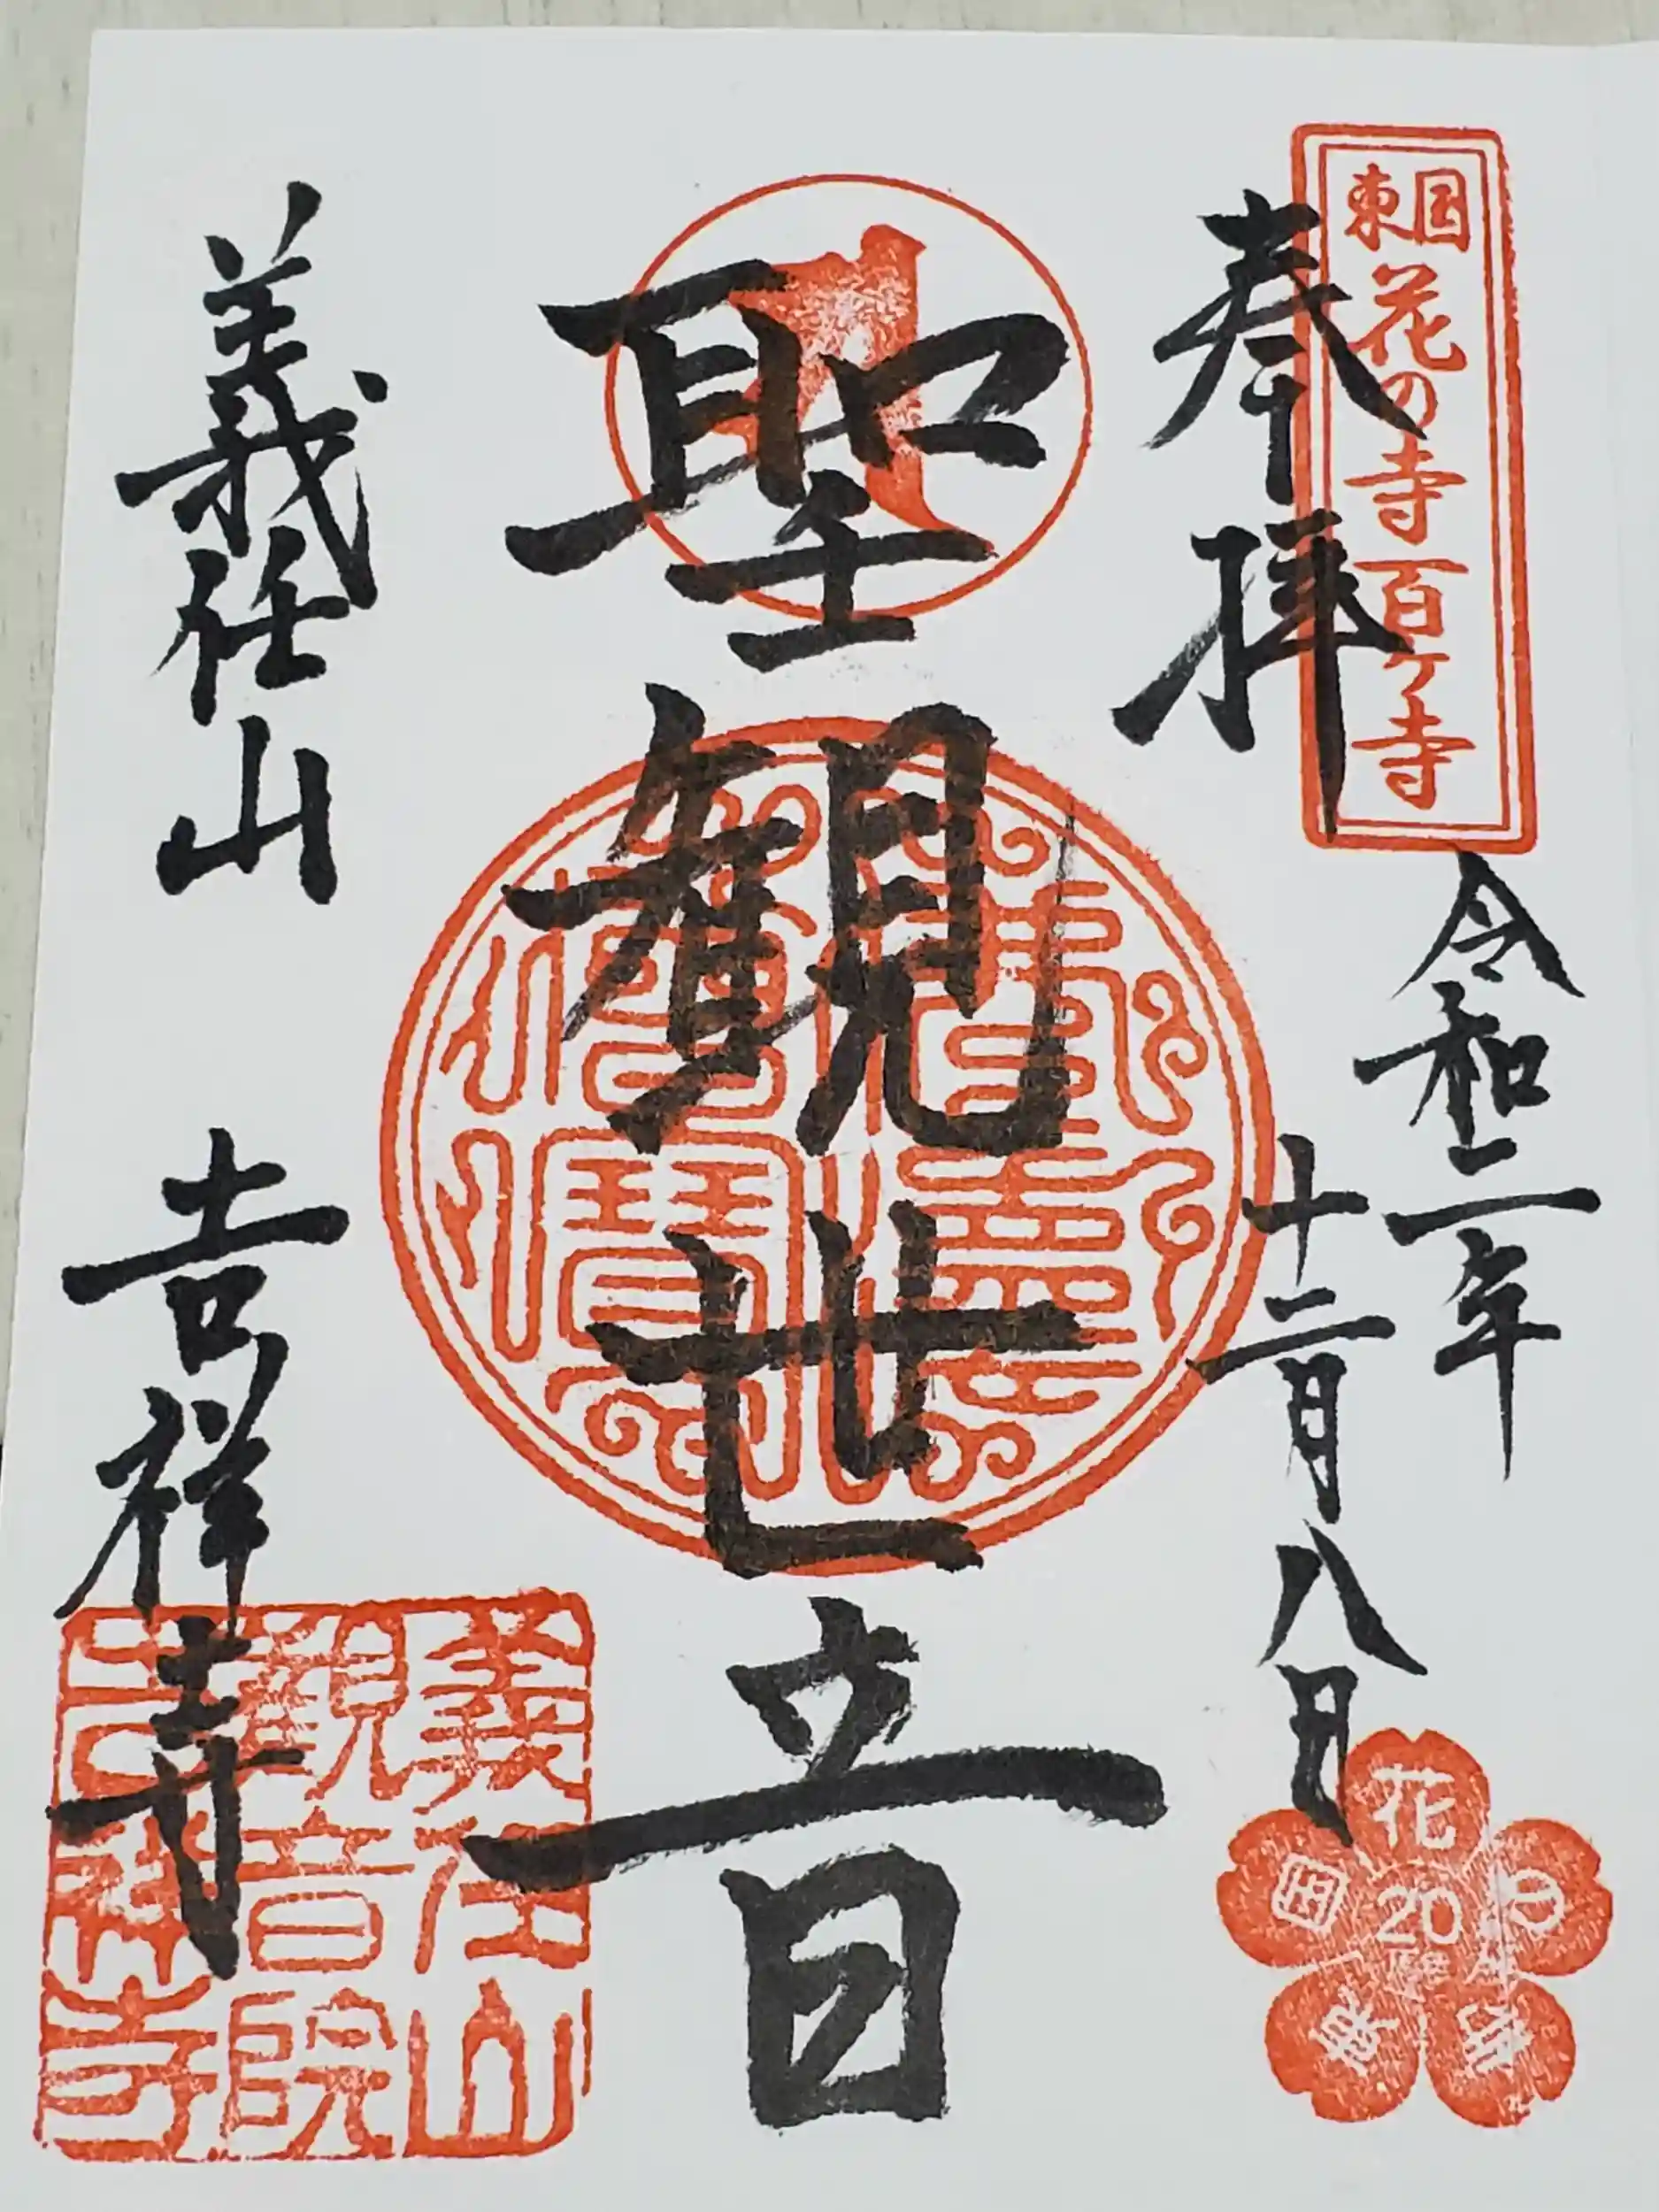 東国
花の寺百ヶ寺
奉拝
令和二年
十二月八日
聖観世音
義任山 吉祥寺
義任山
観音院
吉祥寺
花の寺
東国
20